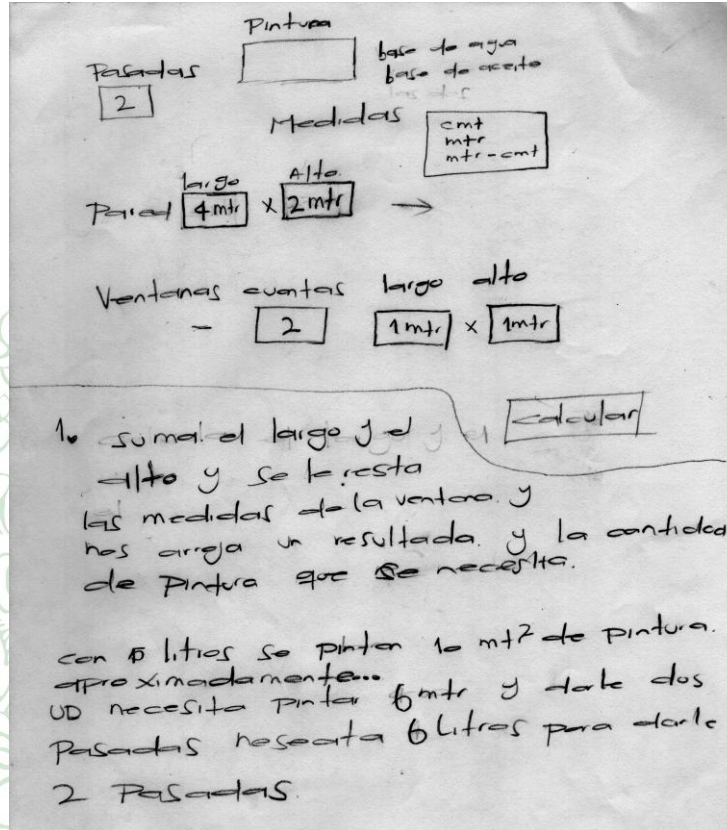 Pintura
base de agua
base de aceite
Pasadas
2
Medidas
cmt
mtr
mtr-cmt
largo Alto
Pared 4 mtr x 2 mtr →
Ventanas cuantas largo alto
- 2 1 mtr x 1mtr
calcular
1. suma el largo y el
alto y se le resta
las medidas de la ventana y
nos arroja un resultada. y la cantidad
de Pintura que se necesita.
con 5 litros se pintan 10 mt² de pintura.
aproximadamente...
UD necesita pintar 6 mtr y darle dos
Pasadas neseata 6 Litros para darle
2 Pasadas